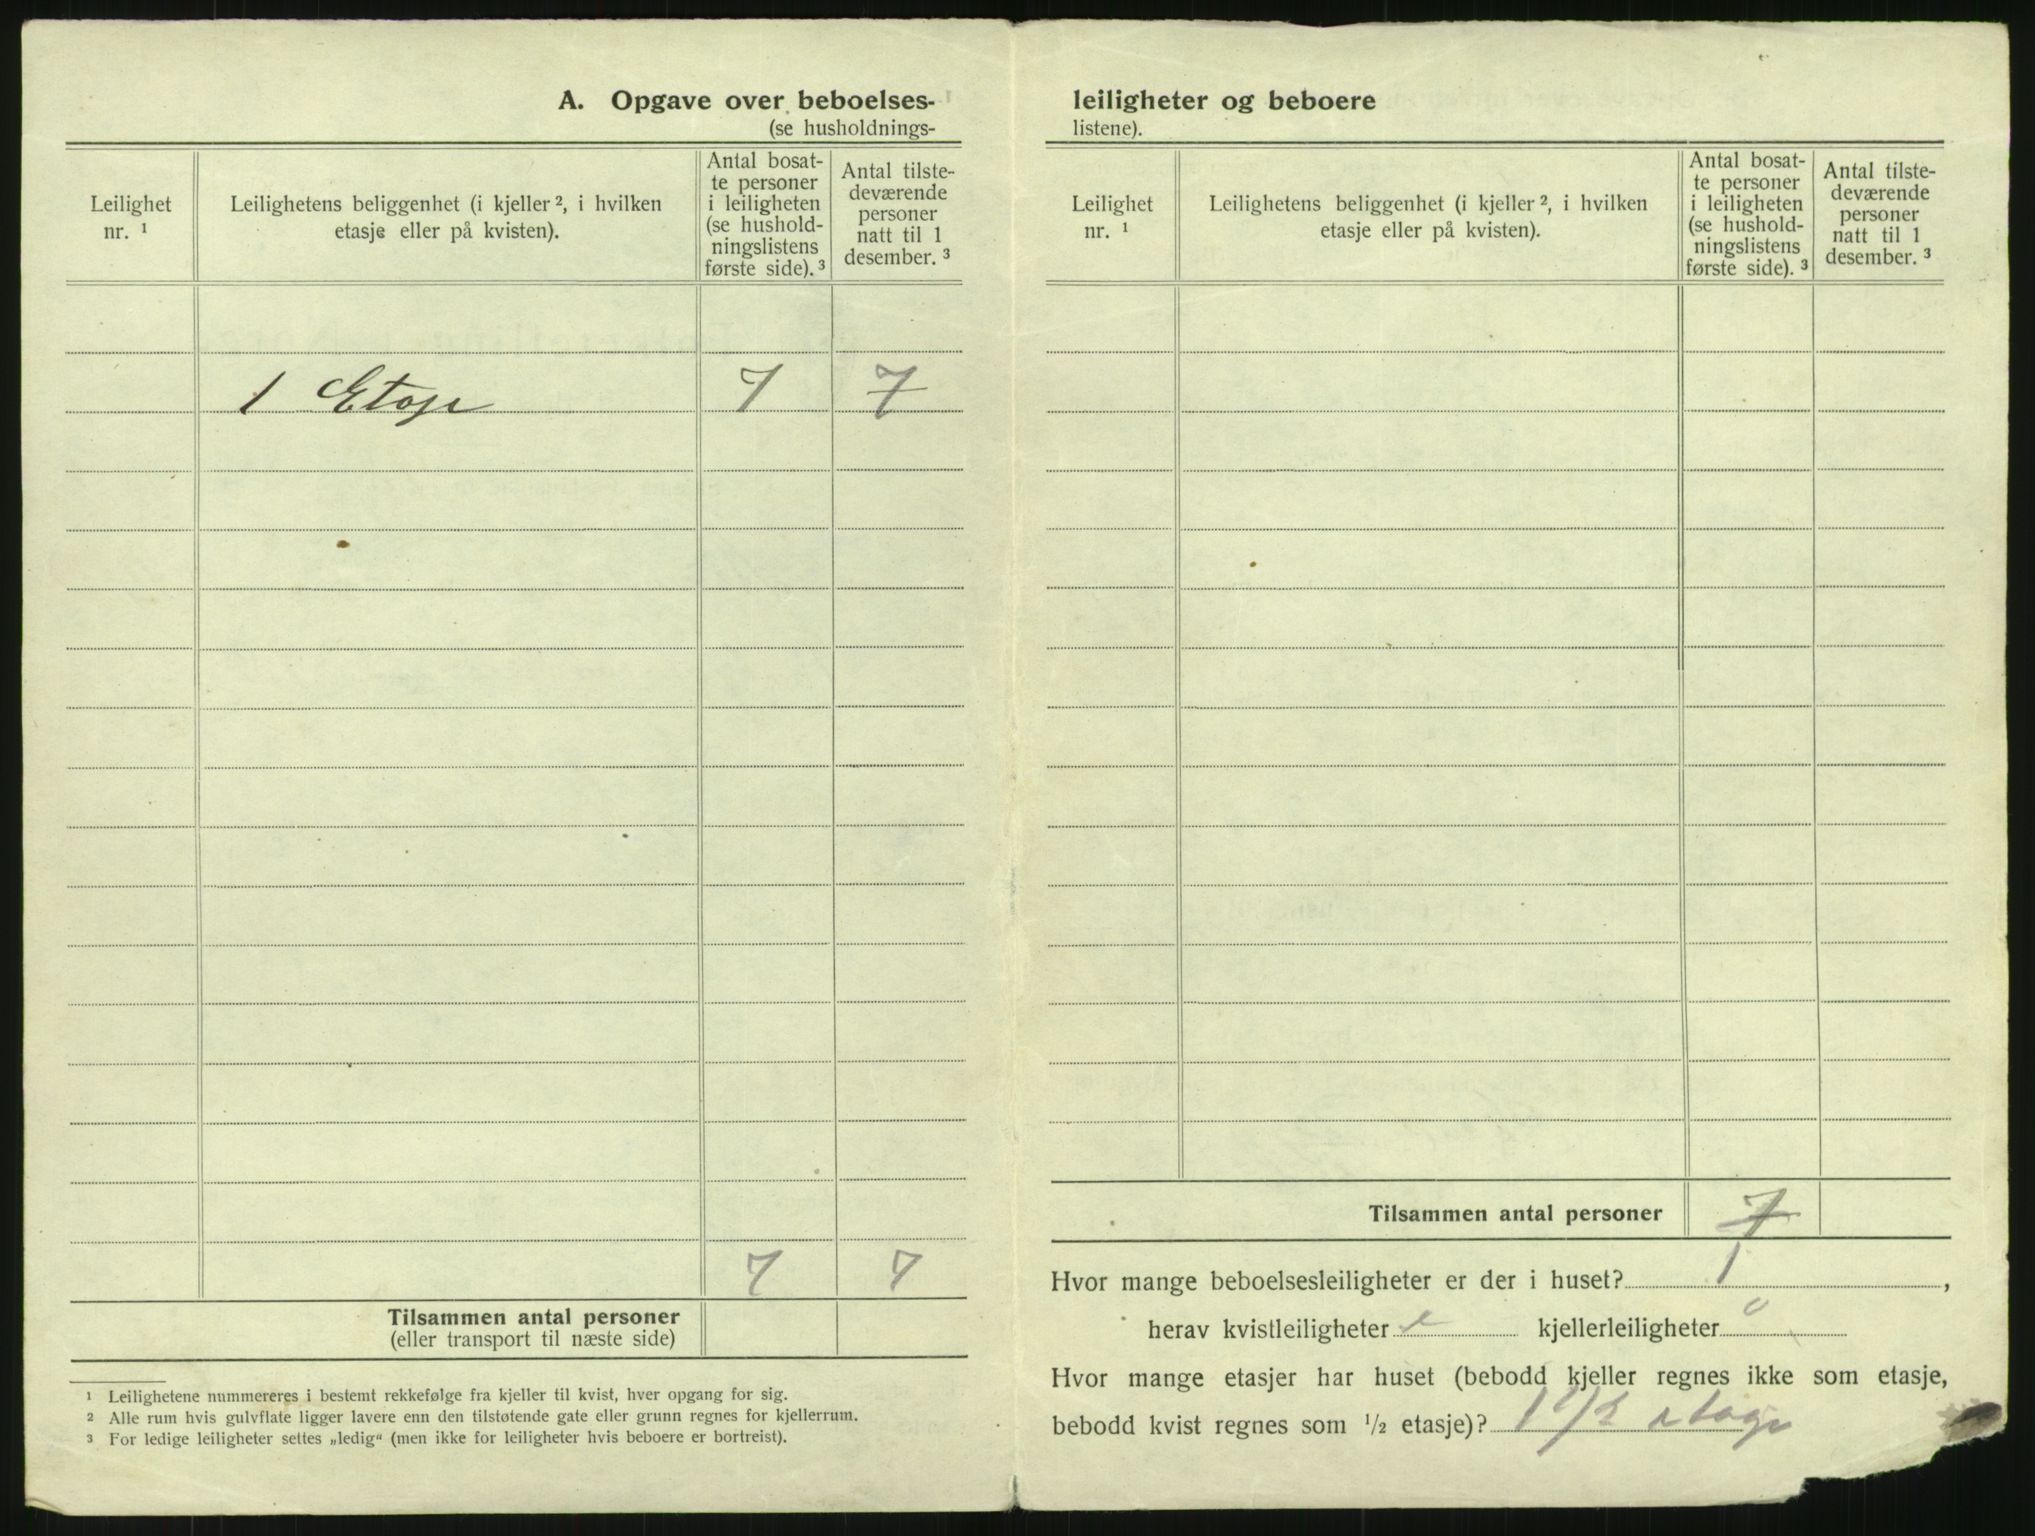 A. Opgave over beboelses-
(se husholdnings-
Leilighet
nr. ¹
Leilighetens beliggenhet (i kjeller ², i hvilken
etasje eller på kvisten).
Antal bosat-
te personer
i leiligheten
(se hushold-
ningslistens
første side). ³
Antal tilste-
deværende
personer
natt til 1
desember. ³
1 Etage 7 7
7 7
Tilsammen antal personer
(eller transport til næste side)
¹ Leilighetene nummereres i bestemt rekkefølge fra kjeller til kvist, hver opgang for sig.
² Alle rum hvis gulvflate ligger lavere enn den tilstøtende gate eller grunn regnes for kjellerrum.
³ For ledige leiligheter settes „ledig“ (men ikke for leiligheter hvis beboere er bortreist).
leiligheter og beboere
listene).
Leilighet
nr. ¹
Leilighetens beliggenhet (i kjeller ², i hvilken
etasje eller på kvisten).
Antal bosat-
te personer
i leiligheten
(se hushold-
ningslistens
første side). ³
Antal tilste-
deværende
personer
natt til 1
desember. ³
Tilsammen antal personer 7
Hvor mange beboelsesleiligheter er der i huset? 1,
herav kvistleiligheter kjellerleiligheter 0
Hvor mange etasjer har huset (bebodd kjeller regnes ikke som etasje,
bebodd kvist regnes som ½ etasje)? 1 1/2 etage